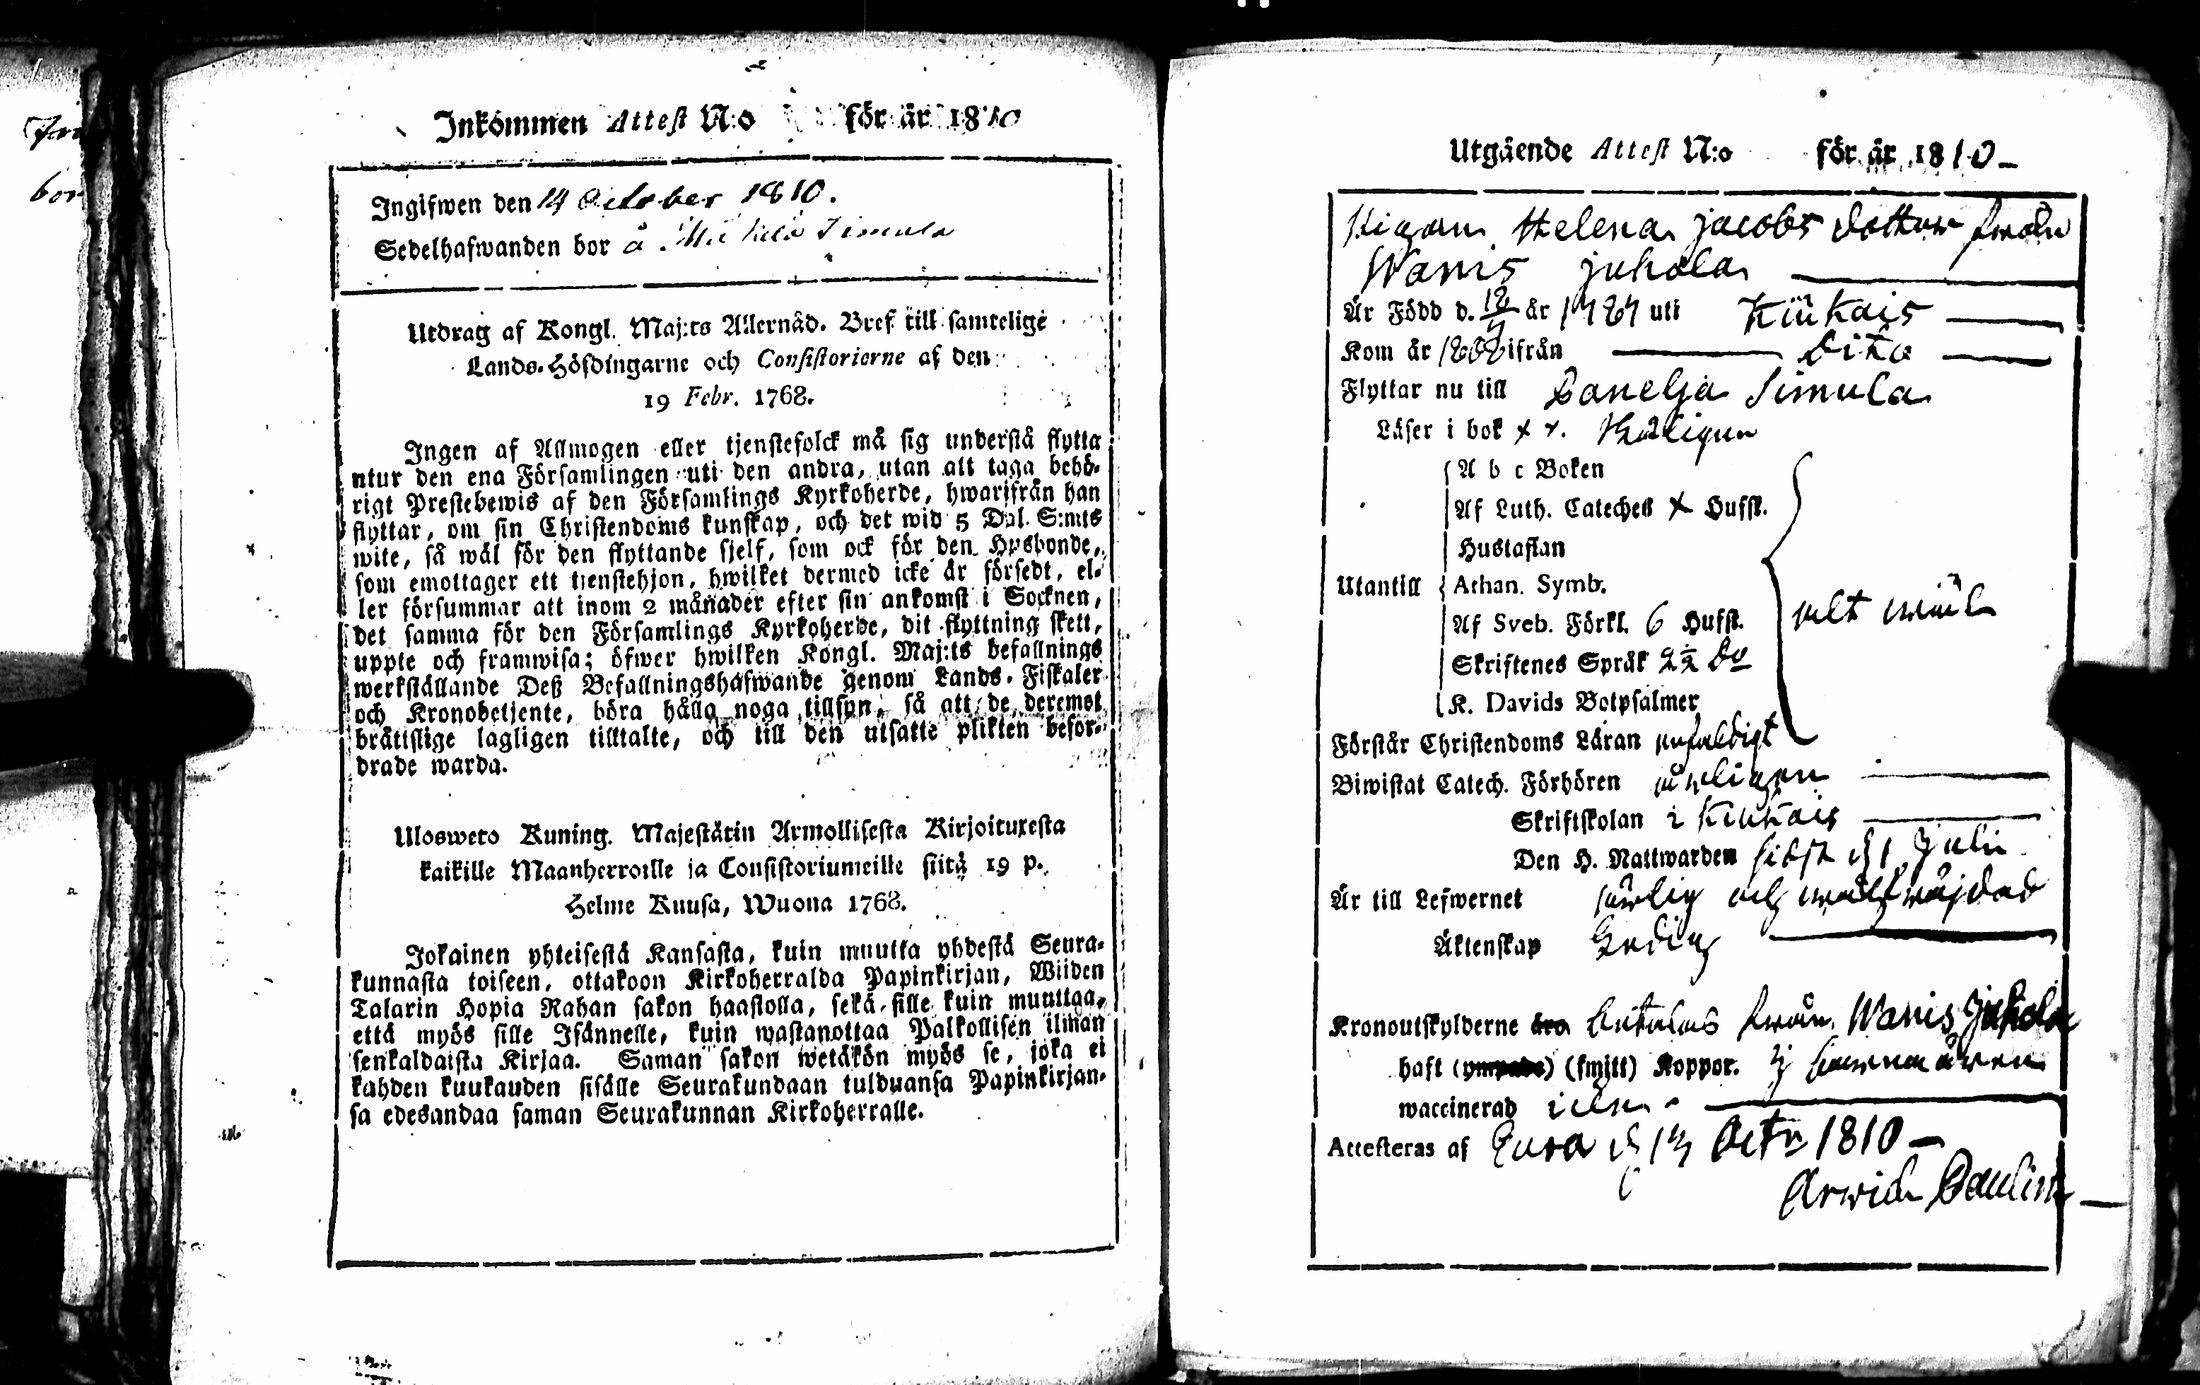 Inkommen Attest N:o för år 1810
Ingifwen den 14 October 1810.
Sedelhafwanden bor å Simula
Utdrag af Kongl. Maj:ts Allernåd. Bref till samtelige
Lands-Höfdingarne och Consistorierne af den
19 Febr. 1768.
Ingen af Allmogen eller tjenstefolck må sig understå flytta
utur den ena Församlingen uti den andra, utan att taga behö-
rigt Prestebewis af den Församlings Kyrkoherde, hwarifrån han
flyttar, om sin Christendoms kunskap, och det wid 5 Dal. S:mts
wite, så wäl för den flyttande sjelf, som ock för den Husbonde,
som emottager ett tjenstehjon, hwilket dermed icke är försedt, el-
ler försummar att inom 2 månader efter sin ankomst i Socknen,
det samma för den Församlings Kyrkoherde, dit flyttning skett,
uppte och framwisa; öfwer hwilken Kongl. Maj:ts befallnings
werkställande Deß Befallningshafwande genom Lands-Fiskaler
och Kronobetjente, böra hålla noga tillsyn, så att de deremot
bråtislige lagligen tilltalte, och till den utsatte plikten befor-
drade warda.
Ulosweto Kuning. Majestätin Armollisesta Kirjoituxesta
kaikille Maanherroille ja Consistoriumeille siitä 19 p.
Helme Kuusa, Wuona 1768.
Jokainen yhteisestä Kansasta, kuin muutta yhdestä Seura-
kunnasta toiseen, ottakoon Kirkoherralda Papinkirjan, Wiiden
Talarin Hopia Rahan sakon haastolla, sekä sille kuin muuttaa,
että myös sille Isännelle, kuin wastanottaa Palkollisen ilman
senkaldaista Kirjaa. Saman sakon wetäkön myös se, joka ei
kahden kuukauden sisälle Seurakundaan tulduansa Papinkirjan-
sa edesandaa saman Seurakunnan Kirkoherralle.
Utgående Attest N:o för år 1810
Pigan Helena Jacobs dotter från
Wanis Juhola
Är Född d. år uti Kiukais
Kom år 1808 ifrån dito
Flyttar nu till Simula
Läser i bok
A b c Boken
Af Luth. Cateches x Hufst.
Hustaflan
Utantill Athan. Symb.
Af Sveb. Förkl. 6 Hufst.
Skriftenes Språk 2½ do
K. Davids Botpsalmer
wäl
Förstår Christendoms Läran enfaldigt
Biwistat Catech. Förhören årligen
Skriftskolan i Kiukais
Den H. Nattwarden sidst d 1 Julii
Är till Lefwernet ärlig och wälfräjdad
Äktenskap Ledig
Kronoutskylderne äro betalas från Wanis Juhola
haft (ympade) (smitt) Koppor. i barnaåren
waccinerad icke.
Attesteras af Eura d 13 Octr 1810
Arwid Paulin